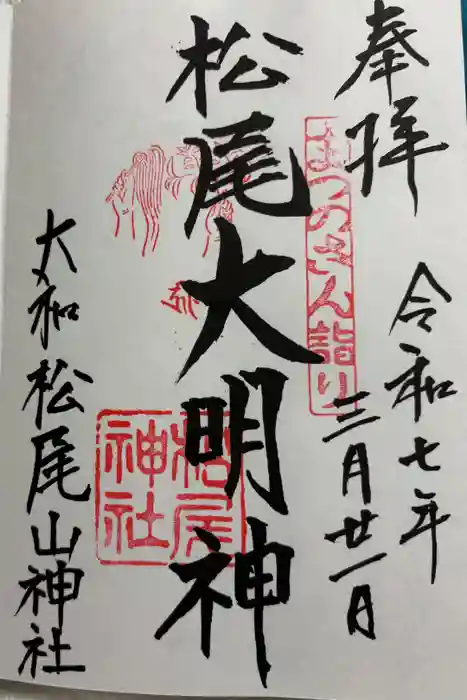 奉拝
令和七年
三月廿一日
まつのさん詣り
松尾大明神
松尾神社
大和松尾山神社